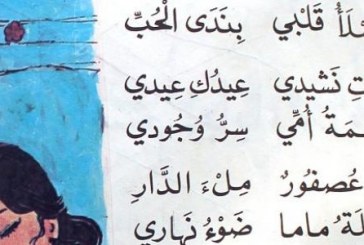 ـلَأُ قَلْبِي بِنَدَى الْحُبِّ
ـتِ نَشِيدِي عِيدُكِ عِيدِي
ـمَةُ أُمِّي سِرُّ وُجُودِي
عُصفُورٌ مِلْءَ الدَّارِ
ـةُ مَامَا ضَوْءُ نَهَارِي